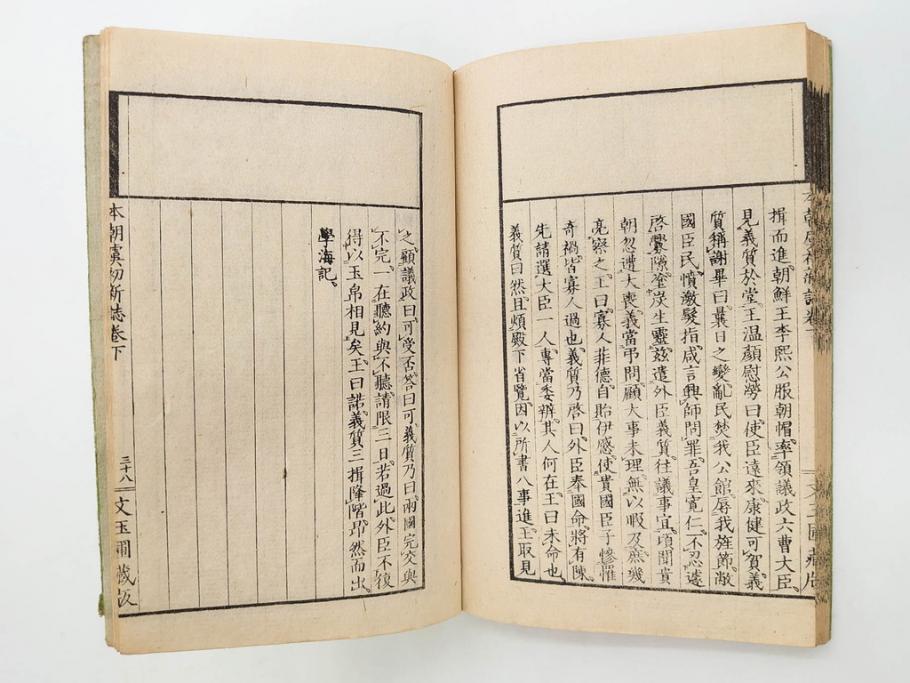 揖而進、朝鮮王李熙公服朝帽、率領議政六曹大臣、
見義質於堂、王温顏慰勞曰、使臣遠來、康健可賀、義
質稱謝畢曰、曩日之變、亂民焚我公館、辱我旌節、敞
國臣民、憤激髮指、咸言興師問罪、吾皇寬仁、不忍遽
啓釁隙、塗炭生靈、茲遣外臣義質、往議事宜、頃聞貴
朝忽遭大喪、義當弔問、顧大事未理、無以暇及、庶幾
亮察之、王曰、寡人菲德、自貽伊慼、使貴國臣子慘罹
奇禍、皆寡人過也、義質乃啓曰、外臣奉國命、將有陳、
先請選大臣一人、專當委辨、其人何在、王曰、未命也、
義質曰、然且煩殿下省覽、因以所書八事進、王取見
之、顧議政曰、可受否、答曰、可、義質乃曰、兩國完交與
不完、一在聽約與不聽、請限三日、若過此、外臣不復
得以玉帛相見矣、王曰諾、義質三揖降階、昂然而出、
學海記、
本朝虞初新誌卷下 三十八 文玉圃藏版